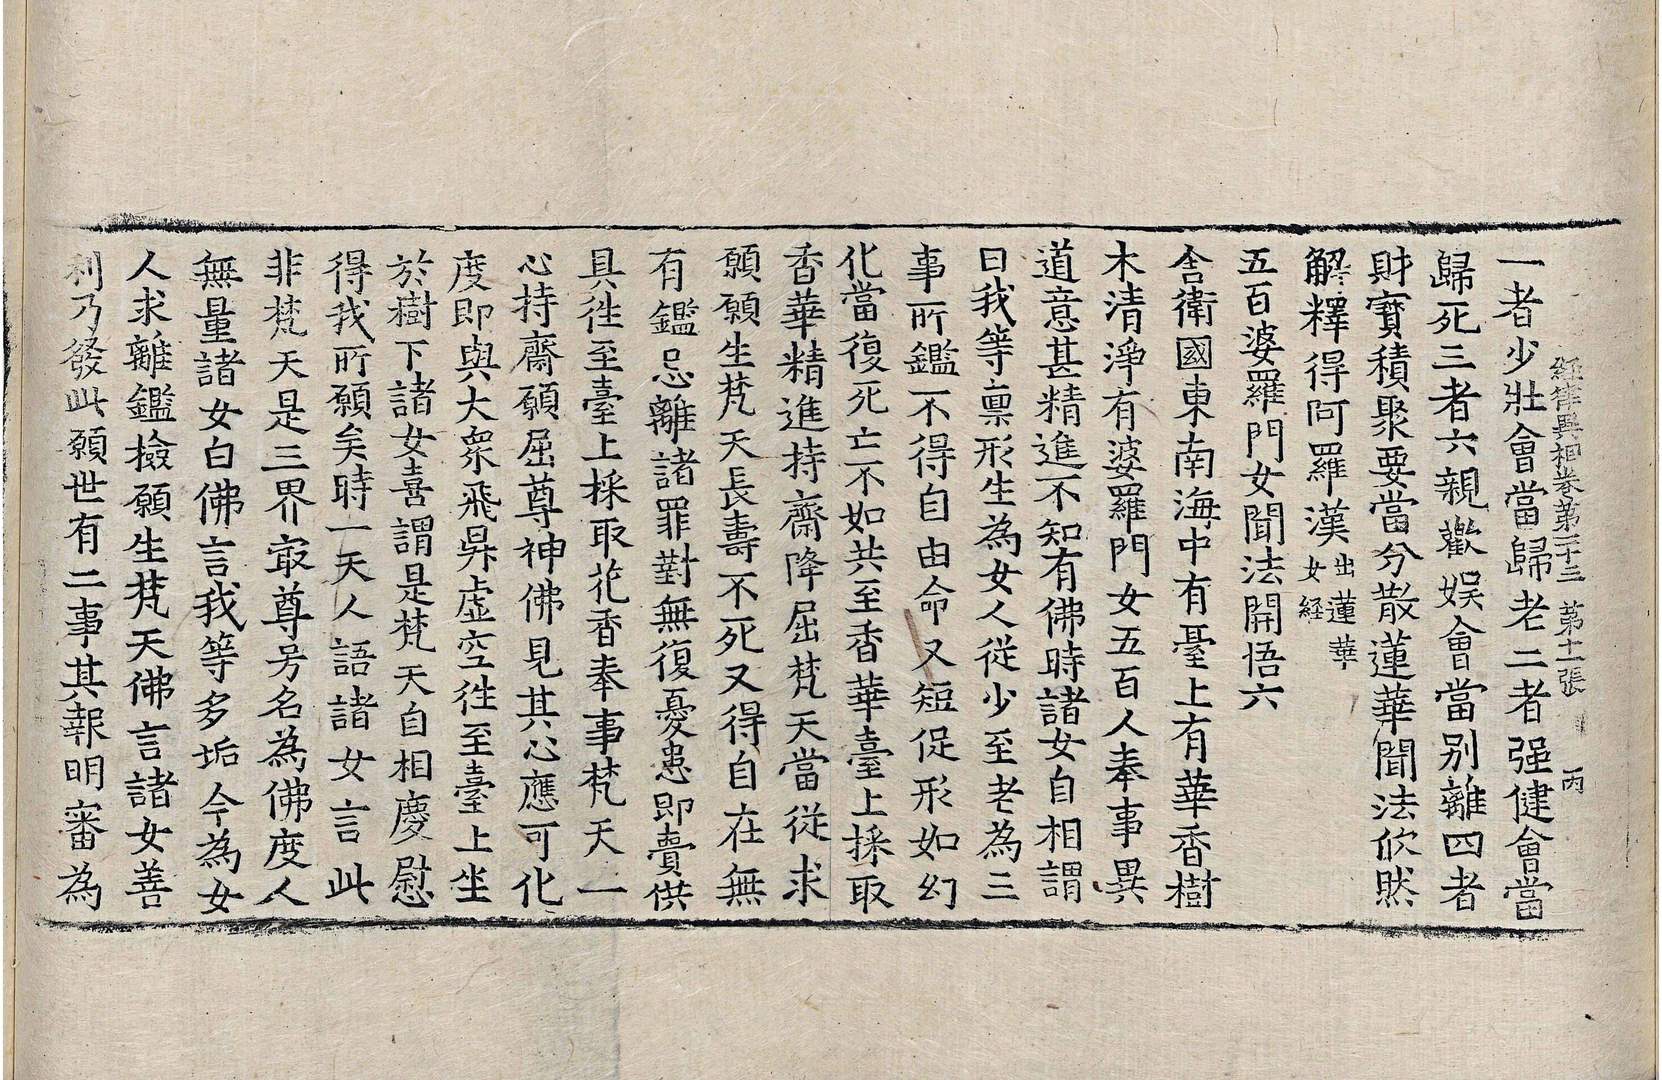 經律異相卷第二十三 第十一張 丙
一者少壯會當歸老二者强健會當
歸死三者六親歡娛會當别離四者
財寳積聚要當分散蓮華聞法欣然
解釋得阿羅漢出蓮華女經
五百婆羅門女聞法開悟六
舍衛國東南海中有臺上有華香樹
木清淨有婆羅門女五百人奉事異
道意甚精進不知有佛時諸女自相謂
曰我等禀形生為女人從少至老為三
事所鑑不得自由命又短促形如幻
化當復死亡不如共至香華臺上採取
香華精進持齋降屈梵天當從求
願願生梵天長壽不死又得自在無
有鑑忌離諸罪對無復憂患即賷供
具徃至臺上採取花香奉事梵天一
心持齋願屈尊神佛見其心應可化
度即與大衆飛昇虚空徃至臺上坐
於樹下諸女喜謂是梵天自相慶慰
得我所願矣時一天人語諸女言此
非梵天是三界㝡尊号名為佛度人
無量諸女白佛言我等多垢今為女
人求離鑑撿願生梵天佛言諸女善
利乃發此願世有二事其報明審為